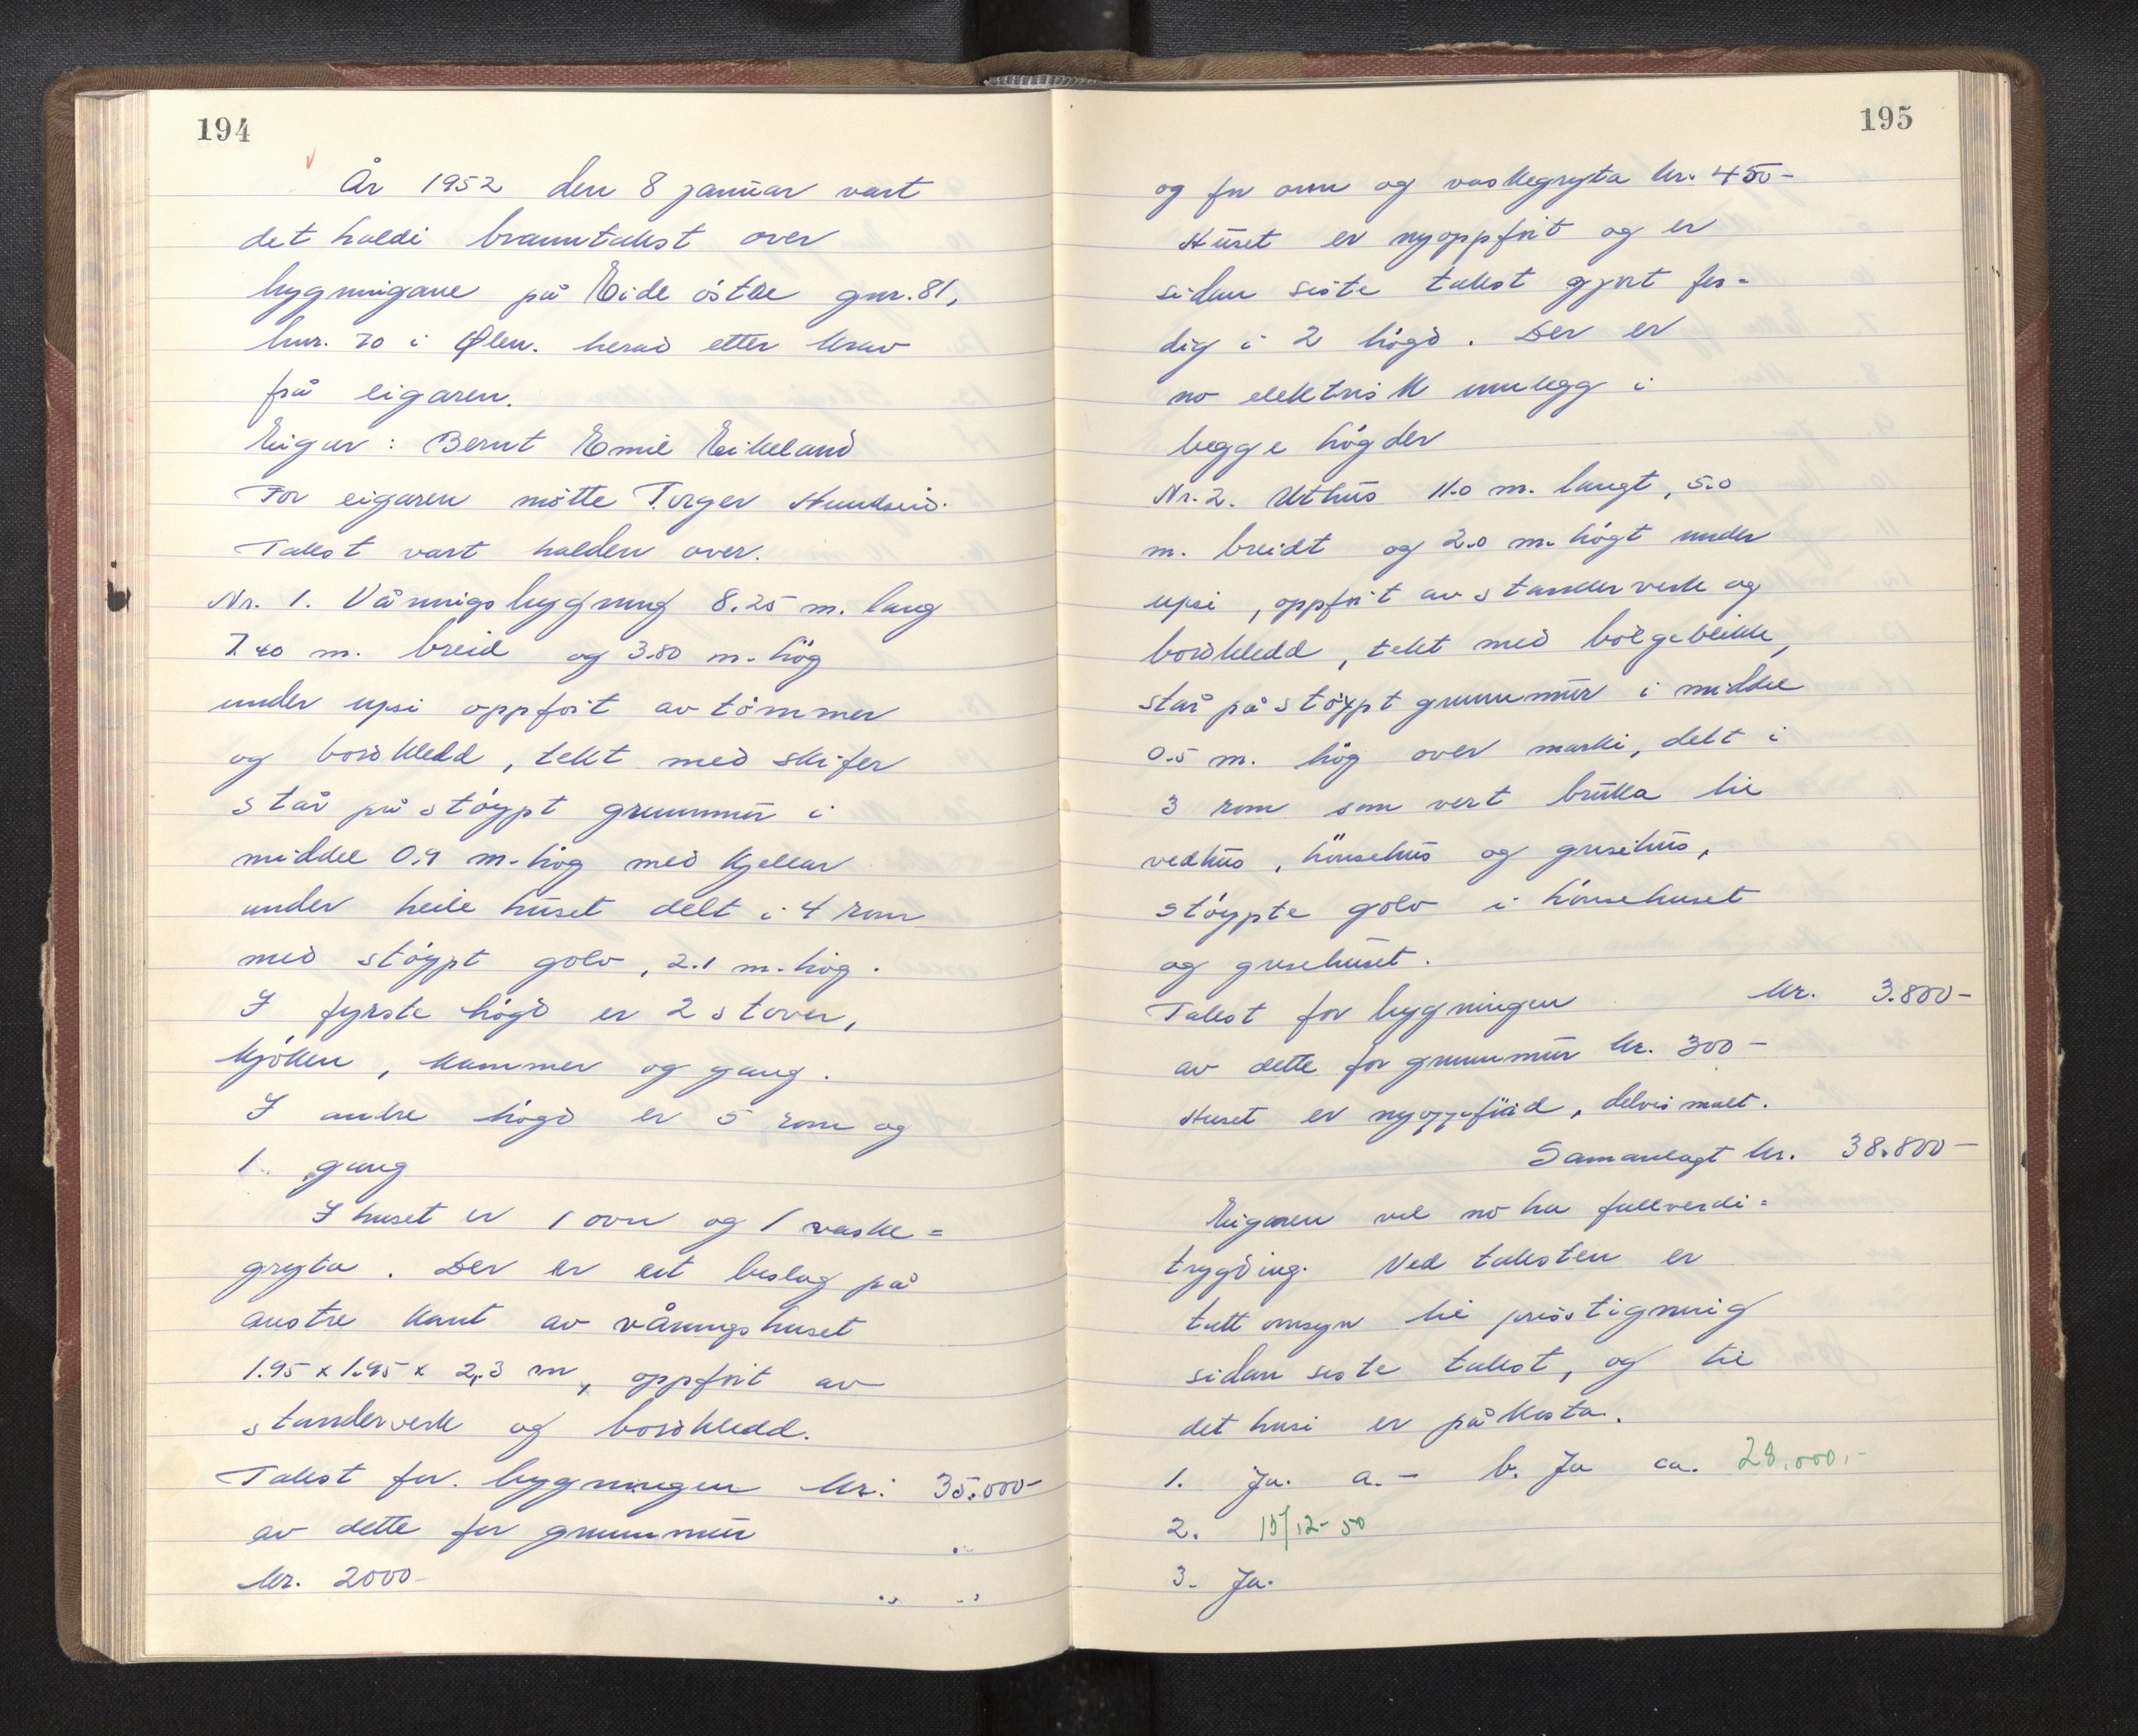 194
År 1952 den 8 januar vart
det haldi branntakst over
bygningane på Eide östre gnr. 81,
bnr. 70 i Ølen. herad etter krav
frå eigaren.
Eigar : Bernt Emil Eikeland
For eigaren mötte Torger Hundseid.
Takst vart halden over.
Nr. 1. Våningsbygning 8.25 m. lang
7.40 m. breid og 3.80 m. hög
under upsi oppfört av tömmer
og bordkledd, tekt med skifer
står på stöypt grunnmur i
middel 0.9 m. hög med kjellar
under heile huset delt i 4 rom
med stöypt golv, 2.1 m. hög.
I fyrste högd er 2 stover,
kjöken, kammer og gang.
I andre högd er 5 rom og
1. gang
I huset er 1 ovn og 1 vaske=
gryta. Der er eit beslag på
austre kant av våningshuset
1.95 x 1.95 x 2,3 m, oppfört av
standerverk og bordkledd.
Takst for. bygningen kr: 35.000-
av dette for grunnmur
kr. 2000-
195
og for ovn og vaskegryta kr. 450-
Huset er nyoppfört og er
sidan siste takst gjort fer=
dig i 2 högd. Der er
no elektrisk innlegg i
begge högder
Nr. 2. Uthus 11.0 m. langt, 5.0
m. breidt og 2.0 m. högt under
upsi, oppfört av standerverk og
bordkledd, tekt med bölgeblikk,
står på stöypt grunnmur i middel
0.5 m. hög over marki, delt i
3 rom som vert brukka til
vedhus, hönsehus og grisehus,
stöypte golv i hönsehuset
og grisehuset.
Takst for bygningen kr. 3.800-
av dette for grunnmur kr. 300-
Huset er nyoppförd, delvis malt.
Samanlagt kr. 38.800-
Eigaren vil no ha fullverdi=
trygding. Ved taksten er
tatt omsyn til prisstigning
sidan siste takst, og til
det husi er påkosta.
1. Ja. a. - b. Ja ca. 28.000.-
2. 15/12-50
3. Ja.